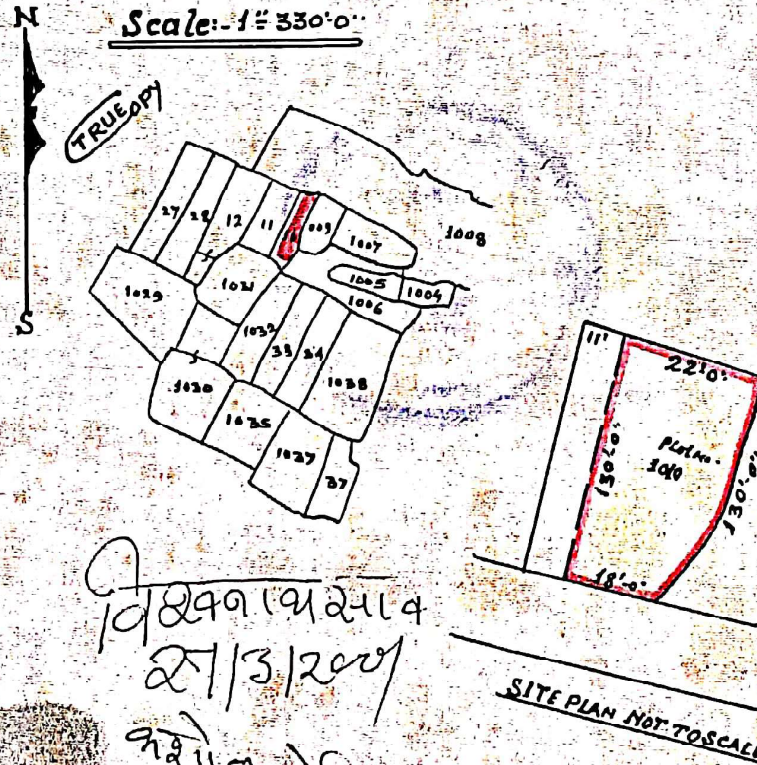 N
Scale:- 1"= 330'-0"
TRUE COPY
S
27
28
12
11
1009
1007
1008
1005
1004
1006
1029
1021
1032
33
34
1038
1030
1035
1037
37
11'
22'-0"
130'-0"
Plot No.
1010
130'-0"
18'-0"
विश्वनाथ साव
27/3/2009
SITE PLAN NOT TO SCALE